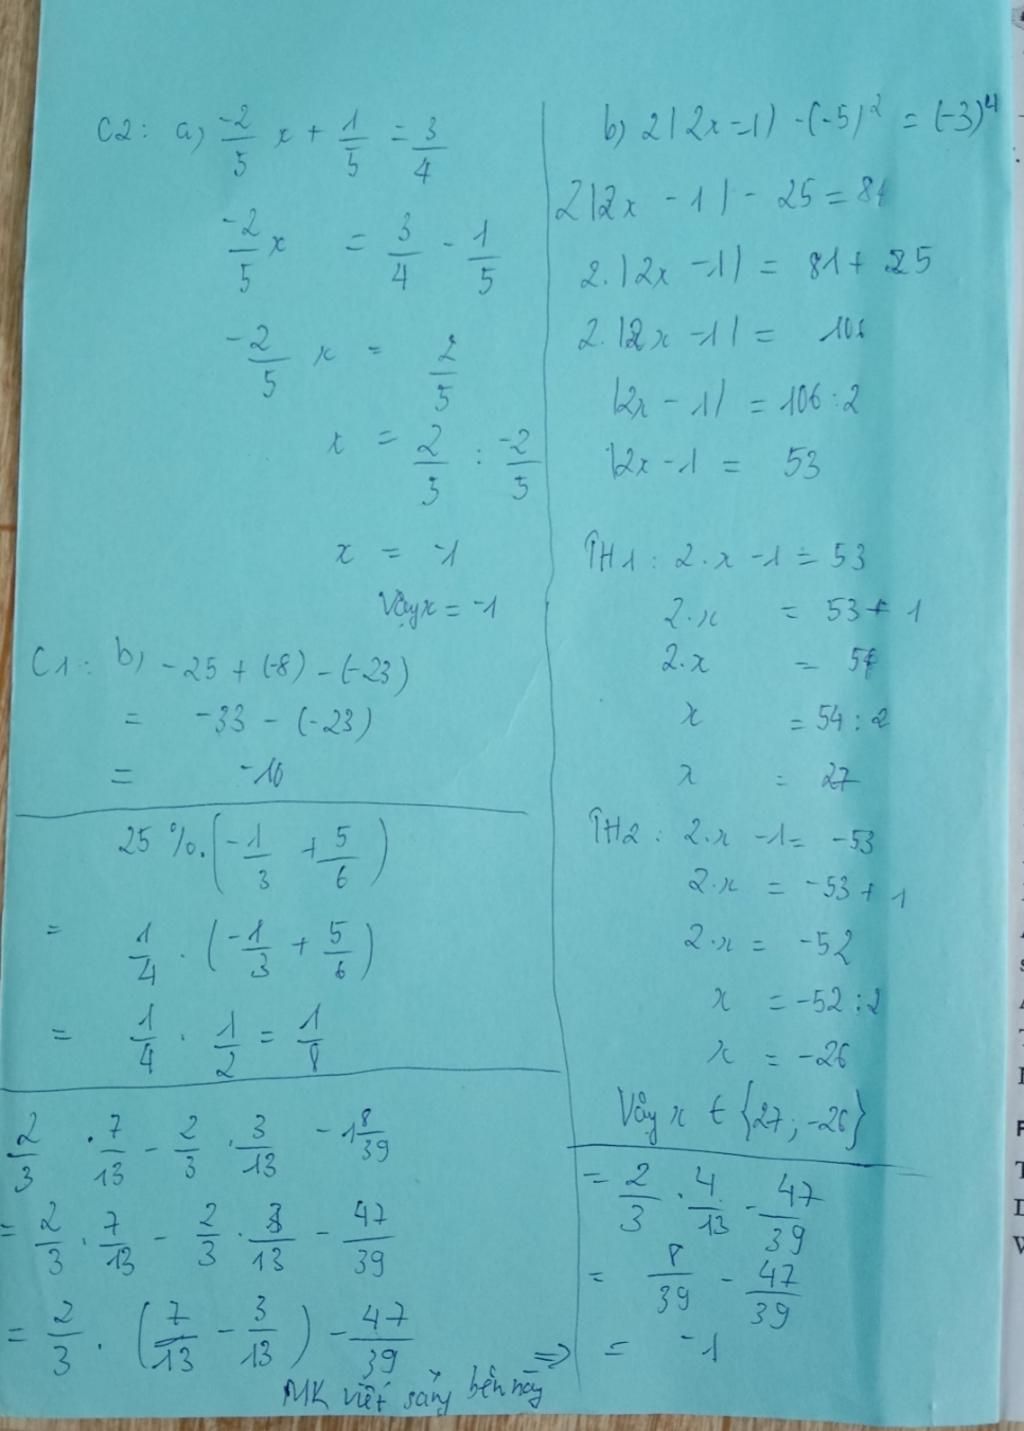 C2: a) -2/5 x + 1/5 = 3/4
-2/5 x = 3/4 - 1/5
-2/5 x = 2/5
x = 2/5 : -2/5
x = -1
Vậy x = -1
C1: b) -25 + (-8) - (-23)
= -33 - (-23)
= -10
25 %. (-1/3 + 5/6)
= 1/4 . (-1/3 + 5/6)
= 1/4 . 1/2 = 1/8
2/3 . 7/13 - 2/3 . 3/13 - 1 8/39
= 2/3 . 7/13 - 2/3 . 3/13 - 47/39
= 2/3 . (7/13 - 3/13) - 47/39
MK viết sang bên này =>
b) 2|2x-1| - (-5)² = (-3)⁴
2|2x - 1| - 25 = 81
2.|2x - 1| = 81 + 25
2.|2x - 1| = 106
|2x - 1| = 106 : 2
|2x - 1 = 53
TH1: 2.x - 1 = 53
2.x = 53 + 1
2.x = 54
x = 54 : 2
x = 27
TH2: 2.x - 1 = -53
2.x = -53 + 1
2.x = -52
x = -52 : 2
x = -26
Vậy x ∈ {27; -26}
= 2/3 . 4/13 - 47/39
= 8/39 - 47/39
= -1